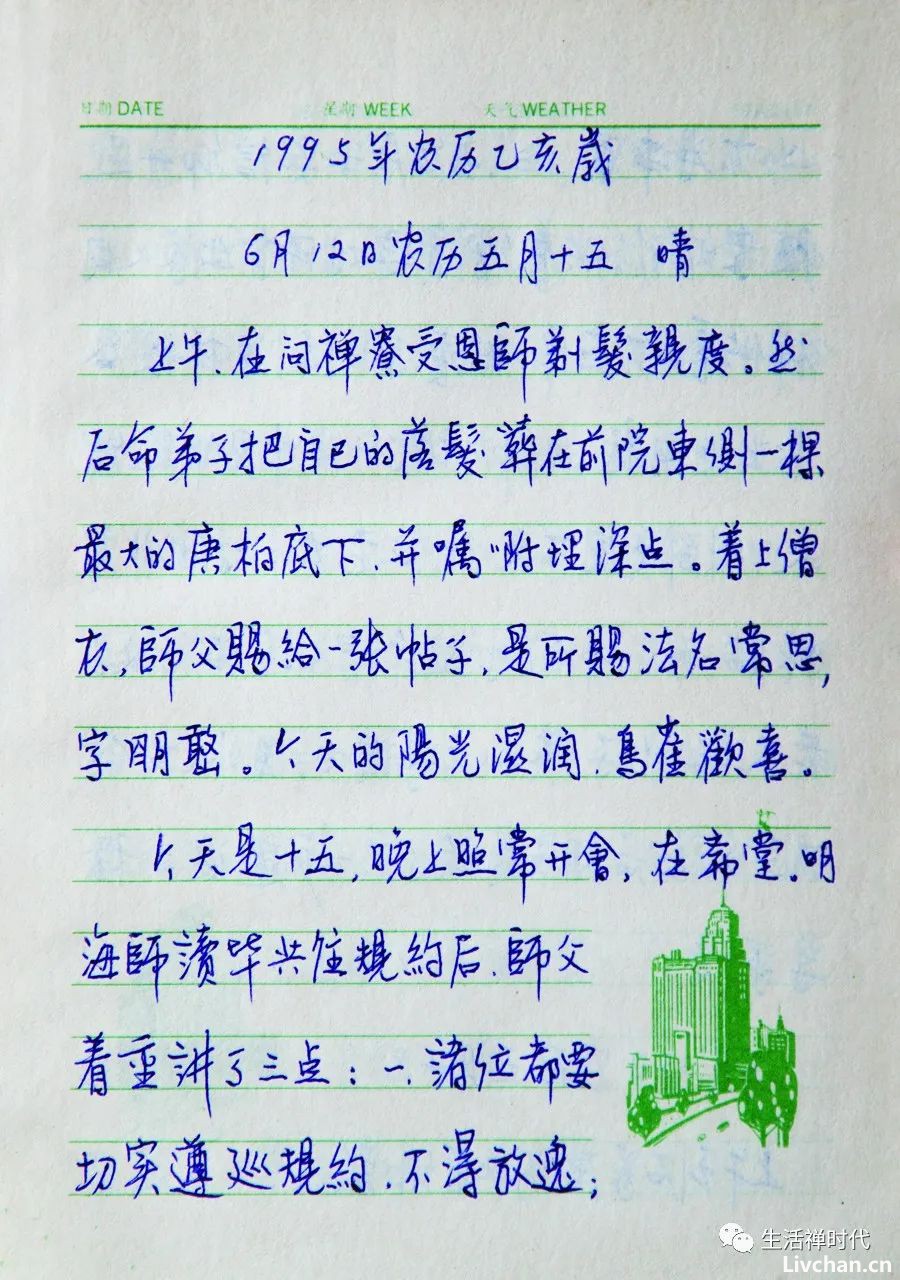 日期 DATE 星期 WEEK 天气 WEATHER
1995年农历乙亥歲
6月12日农历五月十五 晴
上午、在问禅寮受恩師剃髮親度。然
后命弟子把自己的落髮葬在前院東側一棵
最大的唐柏底下、并嘱咐埋深点。着上僧
衣,師父賜給一张帖子,是所賜法名常思,
字明憨。今天的陽光湿润、鳥雀歡喜。
今天是十五,晚上照常开會,在斋堂。明
海師讀毕共住規約后、師父
着重讲了三点：一、諸位都要
切实遵巡規約、不得放逸;
生活禅时代
Livchan.cn